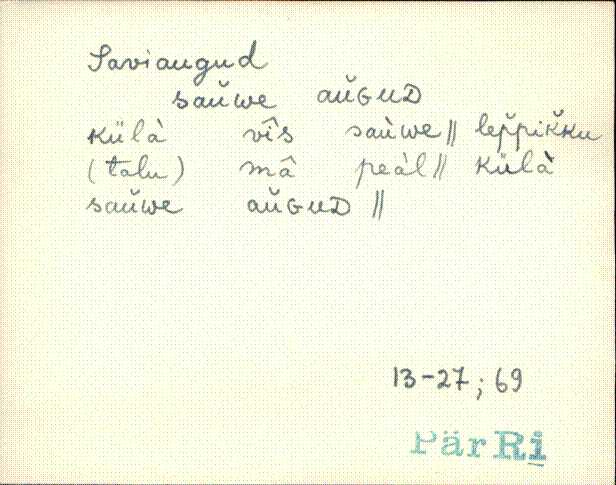 Saviaugud
saŭwe aŭGUD
külà vîs saùwe || lep̌pik̆ku
(talu) mâ peàl || külà
saŭwe aŭGUD ||
13-27; 69
PärRi